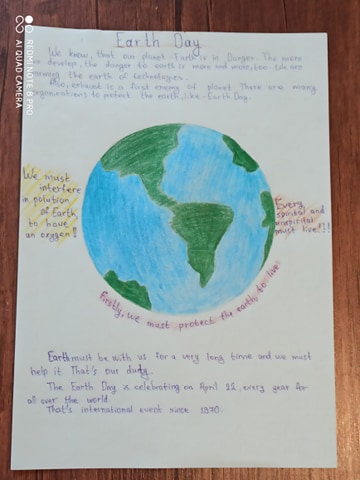 Earth Day
We know, that our planet-Earth is in Danger. The more
develop, the danger to earth is more and more, too. We are
the earth of technologies.
So, is a first enemy of planet. There are many
organizations to protect the earth, like-Earth Day.
We must
interfere
in polution
of Earth,
to have
an oxygen!!
Every
and
must live!!!
Firstly, we must protect the earth to live
Earth must be with us for a very long time and we must
help it. That's our duty.
The Earth Day is celebrating on April 22, every year for
all over the world.
That's international event since 1970.
REDMI NOTE 8 PRO
AI QUAD CAMERA